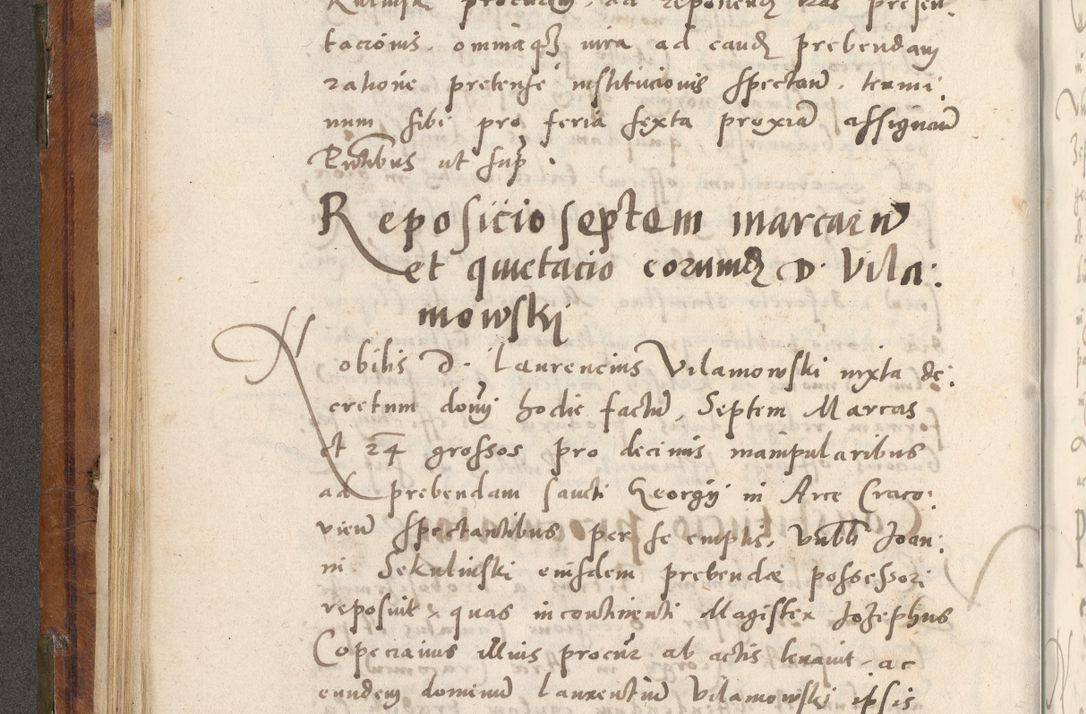 procuram, ad reponend has presen
tacionis, omniaqz iura ad eand prebendam
ratione pretense institucionis spectan. termi:
num sibi pro feria sexta proxia assignan
Rntibus ut sup.
Reposicio septem marcarum
et quietacio eorumd D. Vila:
mowskj
Nobilis D. Laurencius Vilamowski iuxta de:
cretum domj hodie factu, Septem Marcas
et 24 grossos pro decimis manipularibus
ad prebendam sancti Georgij in Arce Craco:
vien spectantibus per se emptis, Vnbli Joan:
ni Sekulinski eiusdem prebendæ possessori
reposuit, quas incontinenti Magister Josephus
Copecianus illius procur ab actis levavit, ac
eundem dominu Laurentiu Vilamowski ipsis